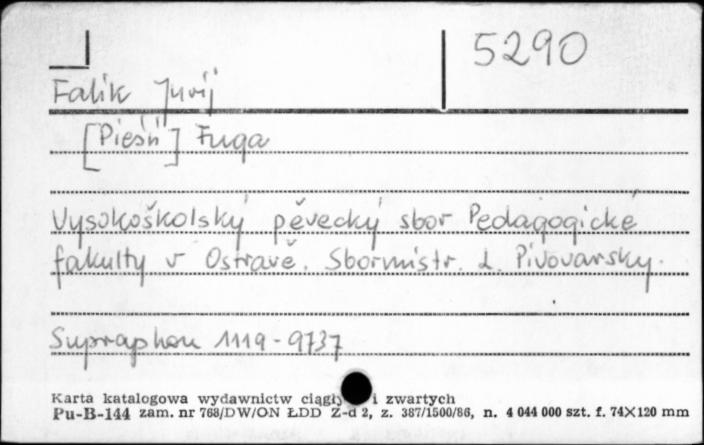 5290
Falik Jurij
[Pieśń] Fuga
Vysokoškolský pěvecký sbor Pedagogické
fakulty v Ostravě. Sbormistr. L. Pivovarský.
Supraphon 1119-9737
Karta katalogowa wydawnictw ciągły i zwartych
Pu-B-144 zam. nr 768/DW/ON ŁDD Z-d 2, z. 387/1500/86, n. 4 044 000 szt. f. 74×120 mm